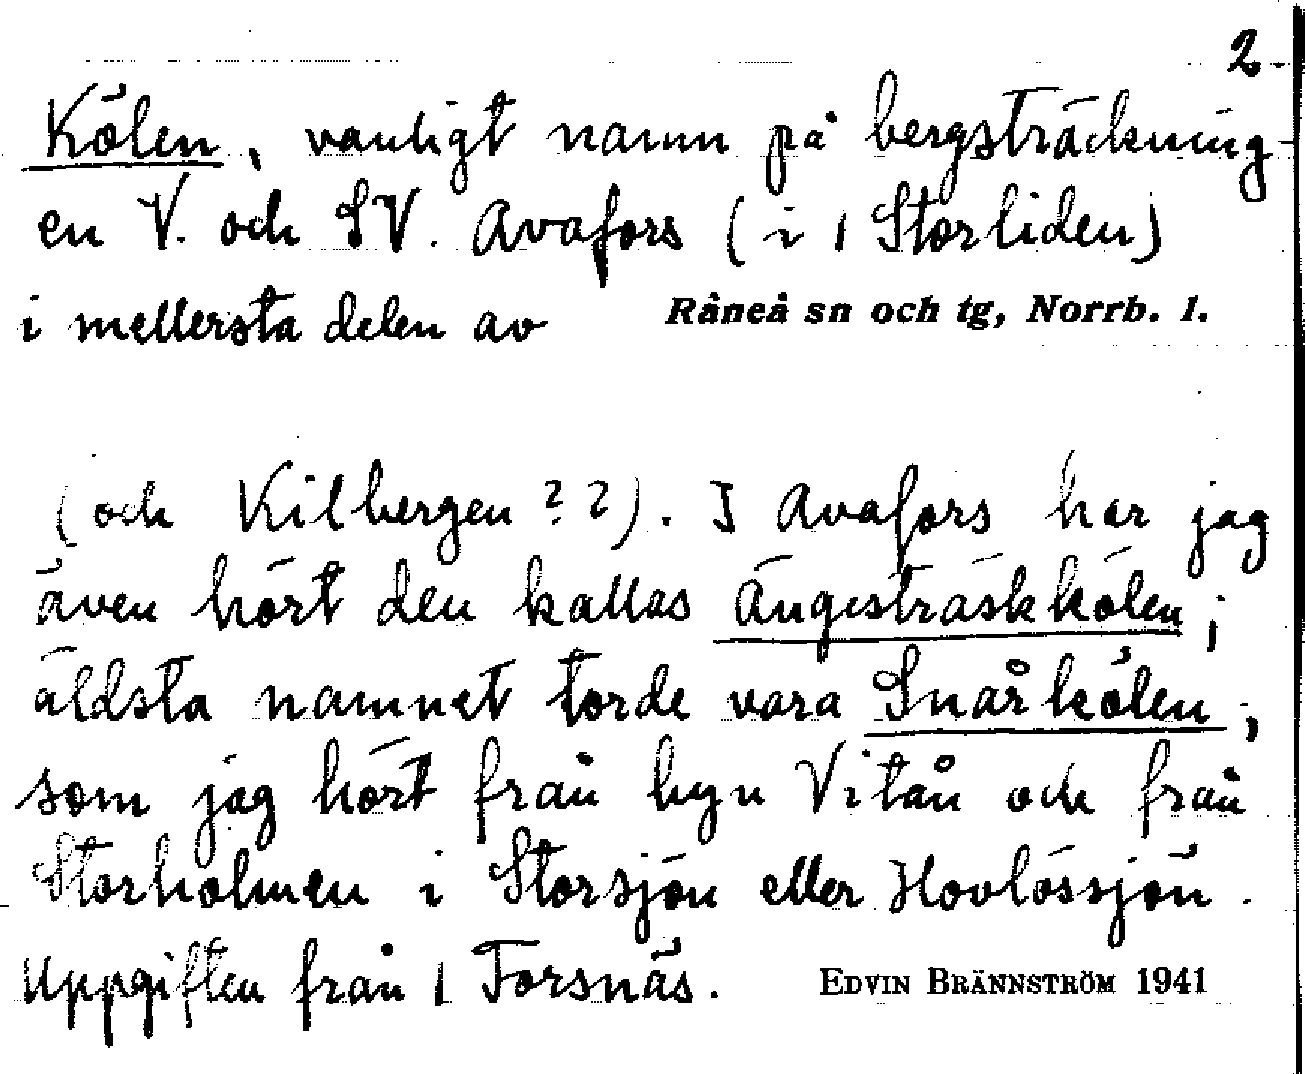 2
Kölen, vanligt namn på bergsträckning
en V. och SV. Avafors (i 1 Storliden)
i mellersta delen av Råneå sn och tg, Norrb. l.
(och Kilbergen ??). I Avafors har jag
även hört den kallas Ängesträskkölen;
äldsta namnet torde vara Snårkölen,
som jag hört från byn Vitån och från
Storholmen i Storsjön eller Hovlössjön.
Uppgiften från 1 Forsnäs. EDVIN BRÄNNSTRÖM 1941